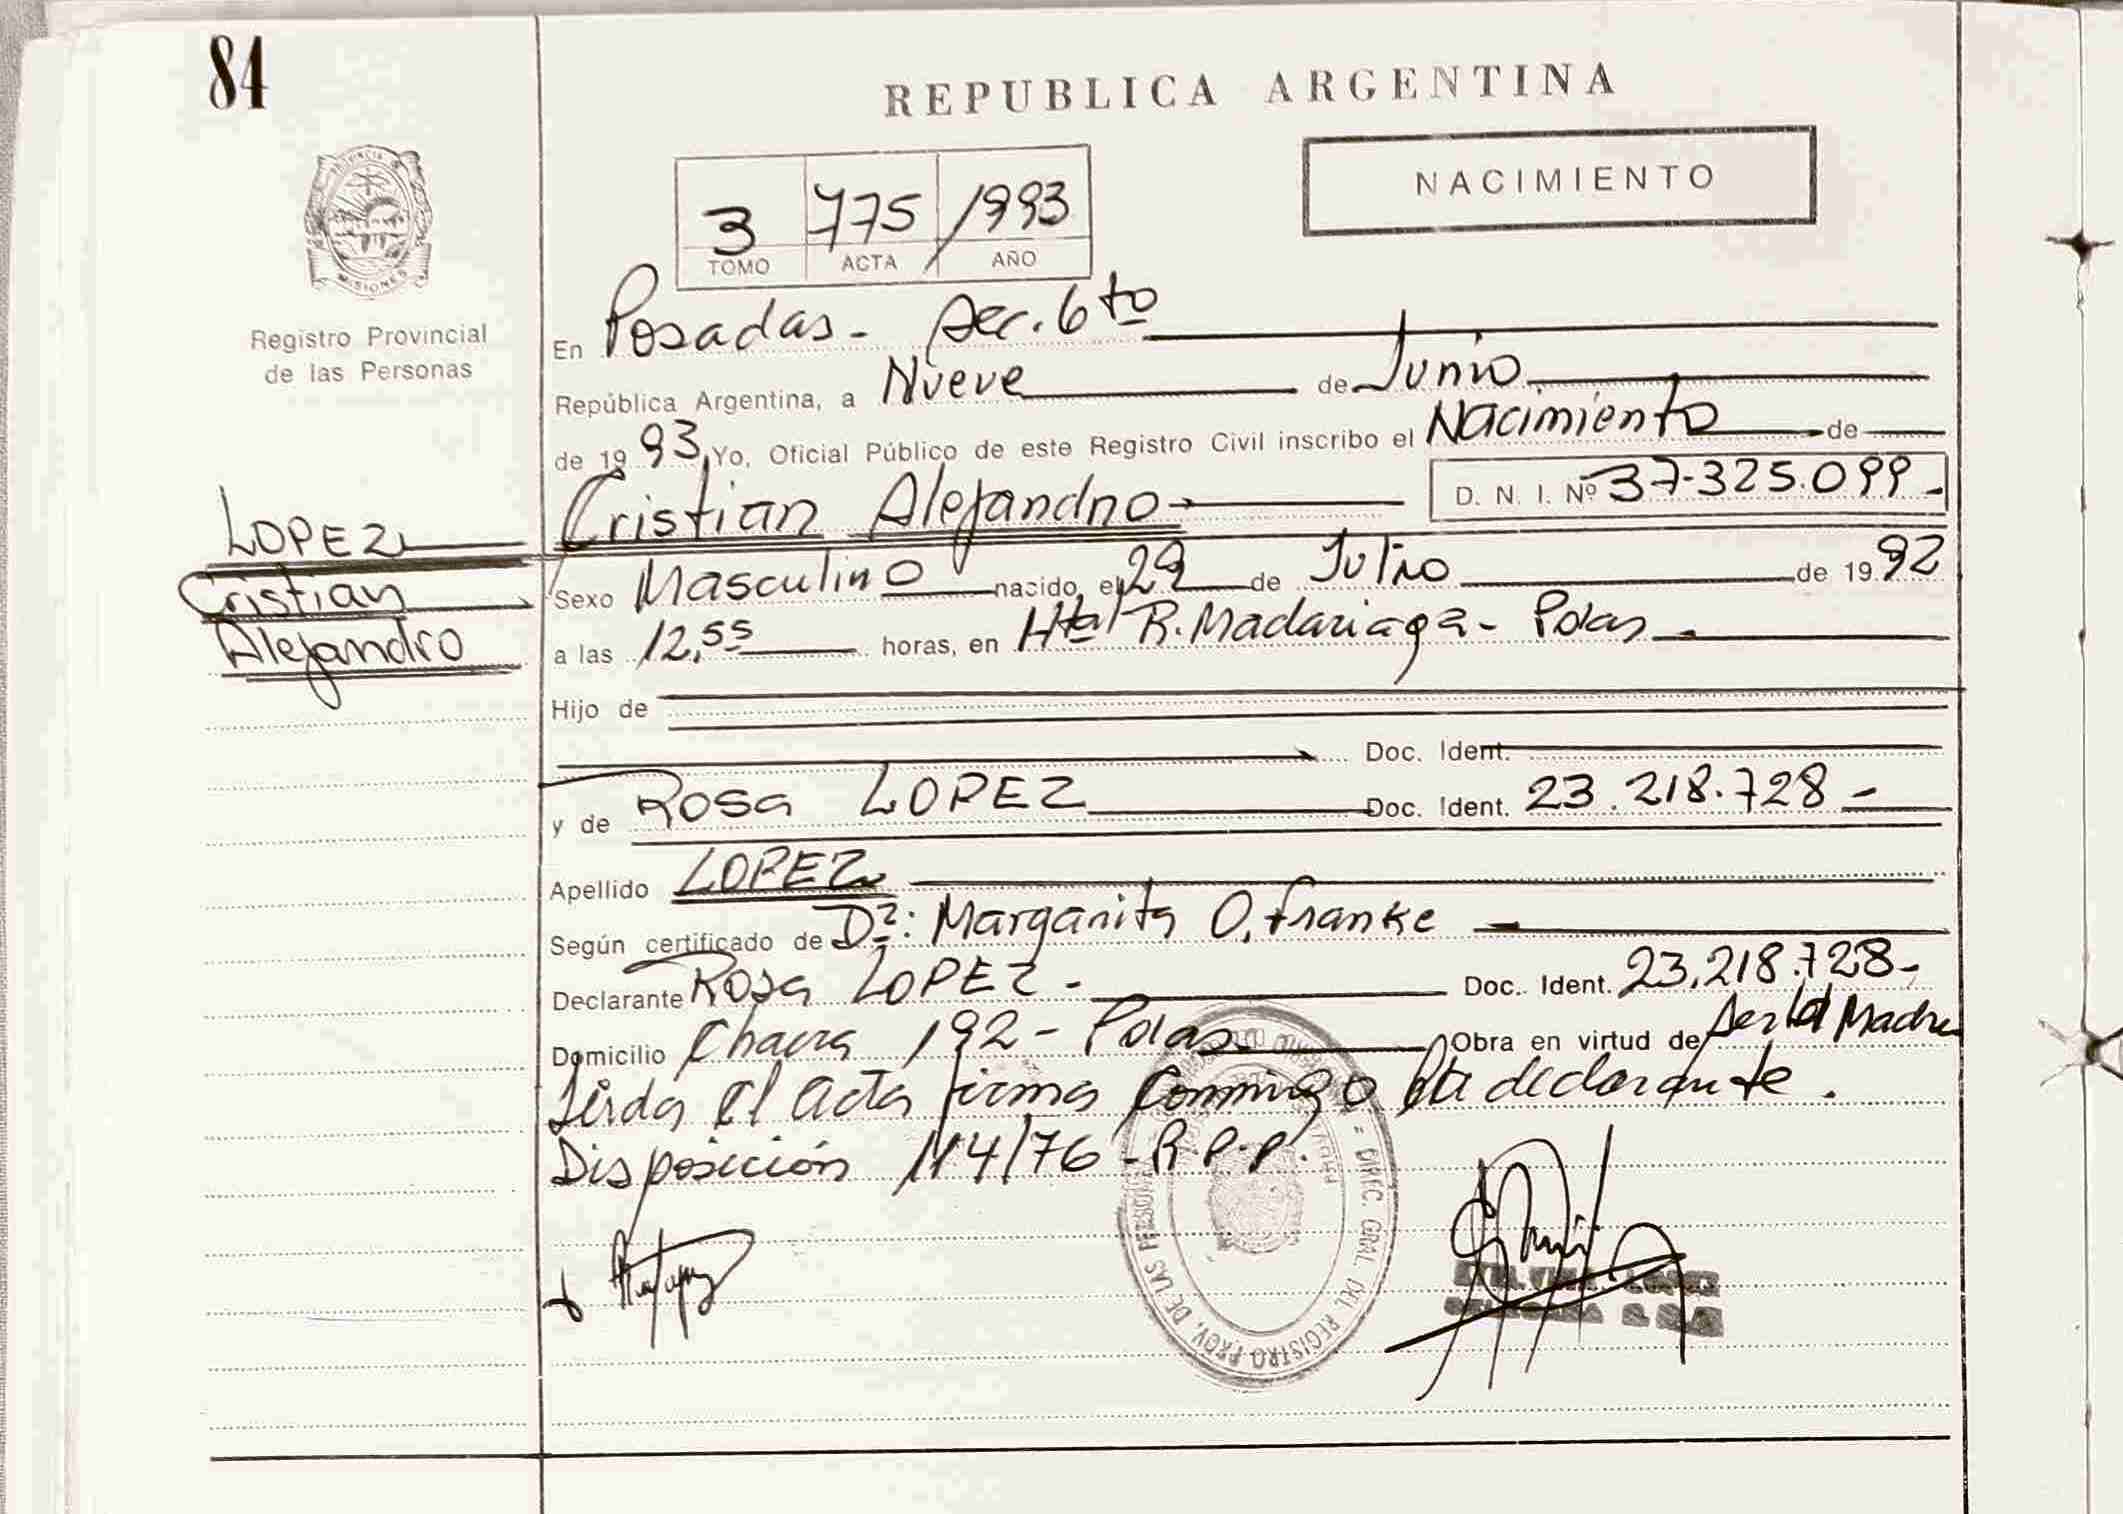 84
REPUBLICA ARGENTINA
NACIMIENTO
3 775 /1993
TOMO ACTA AÑO
PROVINCIA DE
MISIONES
Registro Provincial
de las Personas
LOPEZ
Cristian
Alejandro
En Posadas - Sec. 6to
República Argentina, a Nueve de Junio
de 1993, Yo, Oficial Público de este Registro Civil inscribo el Nacimiento de
Cristian Alejandro D. N. I. Nº 37.325.099-
Sexo Masculino nacido, el 29 de Julio de 1992
a las 12,55 horas, en Htal R. Madariaga - Pdas
Hijo de
Doc. Ident.
y de Rosa LOPEZ Doc. Ident. 23.218.728-
Apellido LOPEZ
Según certificado de Dra: Margarita O. Franke
Declarante Rosa LOPEZ - Doc. Ident. 23.218.728-
Domicilio Chacra 192 - Pdas. Obra en virtud de Ser la Madre
Leida el Acta firma conmigo la declarante.
Disposición 114/76 - R.P.P.
DIREC. GRAL. DEL REGISTRO PROV. DE LAS PERSONAS